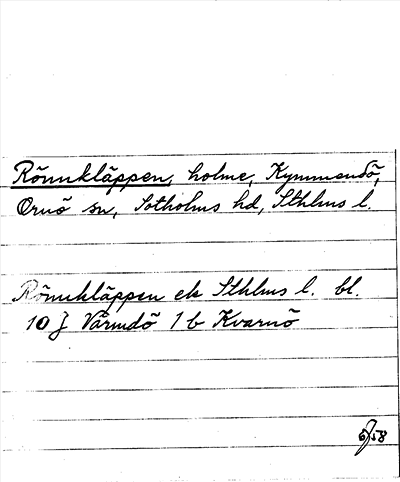 Rönnkläppen, holme, Kymmendö,
Ornö sn, Sotholms hd, Sthlms l.
Rönnkläppen ek Sthlms l. bl.
10 J Värmdö 1 b Kvarnö
6/58